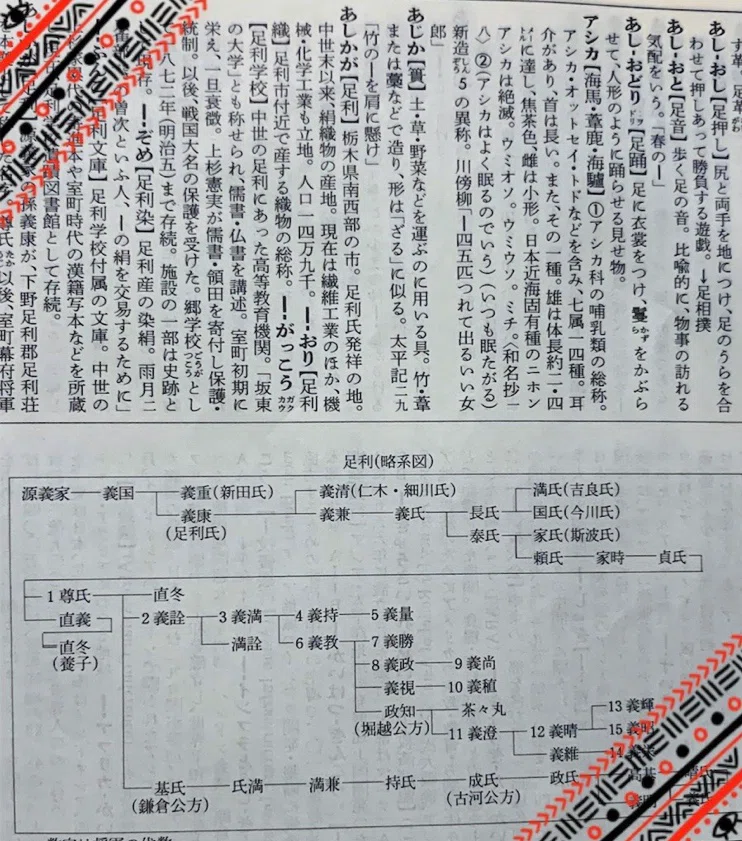 す革。足革
あし‐おし【足押し】尻と両手を地につけ、足のうらを合
わせて押しあって勝負する遊戯。→足相撲
あし‐おと【足音】歩く足の音。比喩的に、物事の訪れる
気配をいう。「春の―」
あし‐おどり【足踊】足に衣裳をつけ、鬘をかぶら
せて、人形のように踊らせる見せ物。
アシカ【海馬・葦鹿・海驢】①アシカ科の哺乳類の総称。
アシカ・オットセイ・トドなどを含み、七属一四種。耳
介があり、首は長い。また、その一種。雄は体長約二・四
に達し、焦茶色、雌は小形。日本近海固有種のニホン
アシカは絶滅。ウミオソ。ウミウソ。ミチ。〈和名抄一
八〉②(アシカはよく眠るのでいう)(いつも眠たがる)
新造5の異称。川傍柳「―四五匹つれて出るいい女
郎」
あじか【簣】土・草・野菜などを運ぶのに用いる具。竹・葦
または藁などで造り、形は「ざる」に似る。太平記二九
「竹の―を肩に懸け」
あしかが【足利】栃木県南西部の市。足利氏発祥の地。
中世末以来、絹織物の産地。現在は繊維工業のほか、機
械・化学工業も立地。人口一四万九千。―‐おり【足利
織】足利市付近で産する織物の総称。―‐がっこう
【足利学校】中世の足利にあった高等教育機関。「坂東
の大学」とも称せられ、儒書・仏書を講述。室町初期に
栄え、一旦衰微。上杉憲実が儒書・領田を寄付し保護・
統制。以後、戦国大名の保護を受けた。郷学校とし
八七二年(明治五)まで存続。施設の一部は史跡と
存。―‐ぞめ【足利染】足利産の染絹。雨月二
曽次といふ人、―の絹を交易するために」
足利文庫】足利学校付属の文庫。中世の
本や室町時代の漢籍写本などを所蔵
図書館として存続。
孫義康が、下野足利郡足利荘
尊氏以後、室町幕府将軍
足利(略系図)
源義家 義国 義重(新田氏) 義清(仁木・細川氏) 満氏(吉良氏)
義康 義兼 義氏 長氏 国氏(今川氏)
(足利氏) 泰氏 家氏(斯波氏)
頼氏 家時 貞氏
1尊氏 直冬
直義 2義詮 3義満 4義持 5義量
直冬 満詮 6義教 7義勝
(養子) 8義政 9義尚
義視 10義稙
政知 茶々丸 13義輝
(堀越公方) 11義澄 12義晴 15義昭
義維 14義栄
基氏 氏満 満兼 持氏 成氏 政氏 高基
(鎌倉公方) (古河公方)